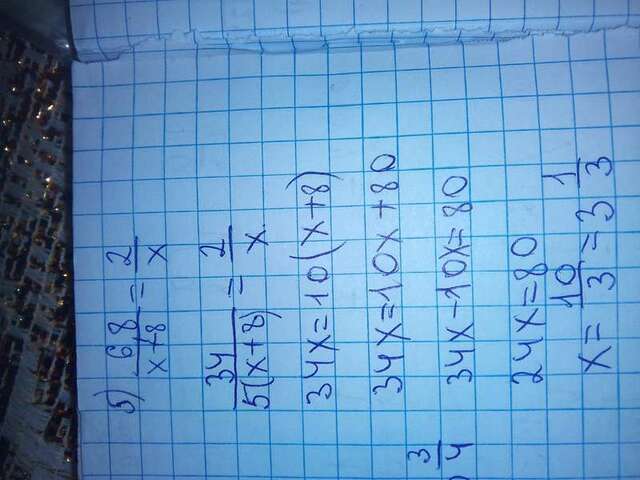 5) 6,8/x+8 = 2/x
34/5(x+8) = 2/x
34x=10(x+8)
34x=10x+80
34x-10x=80
3/4
24x=80
x= 10/3 = 3 1/3